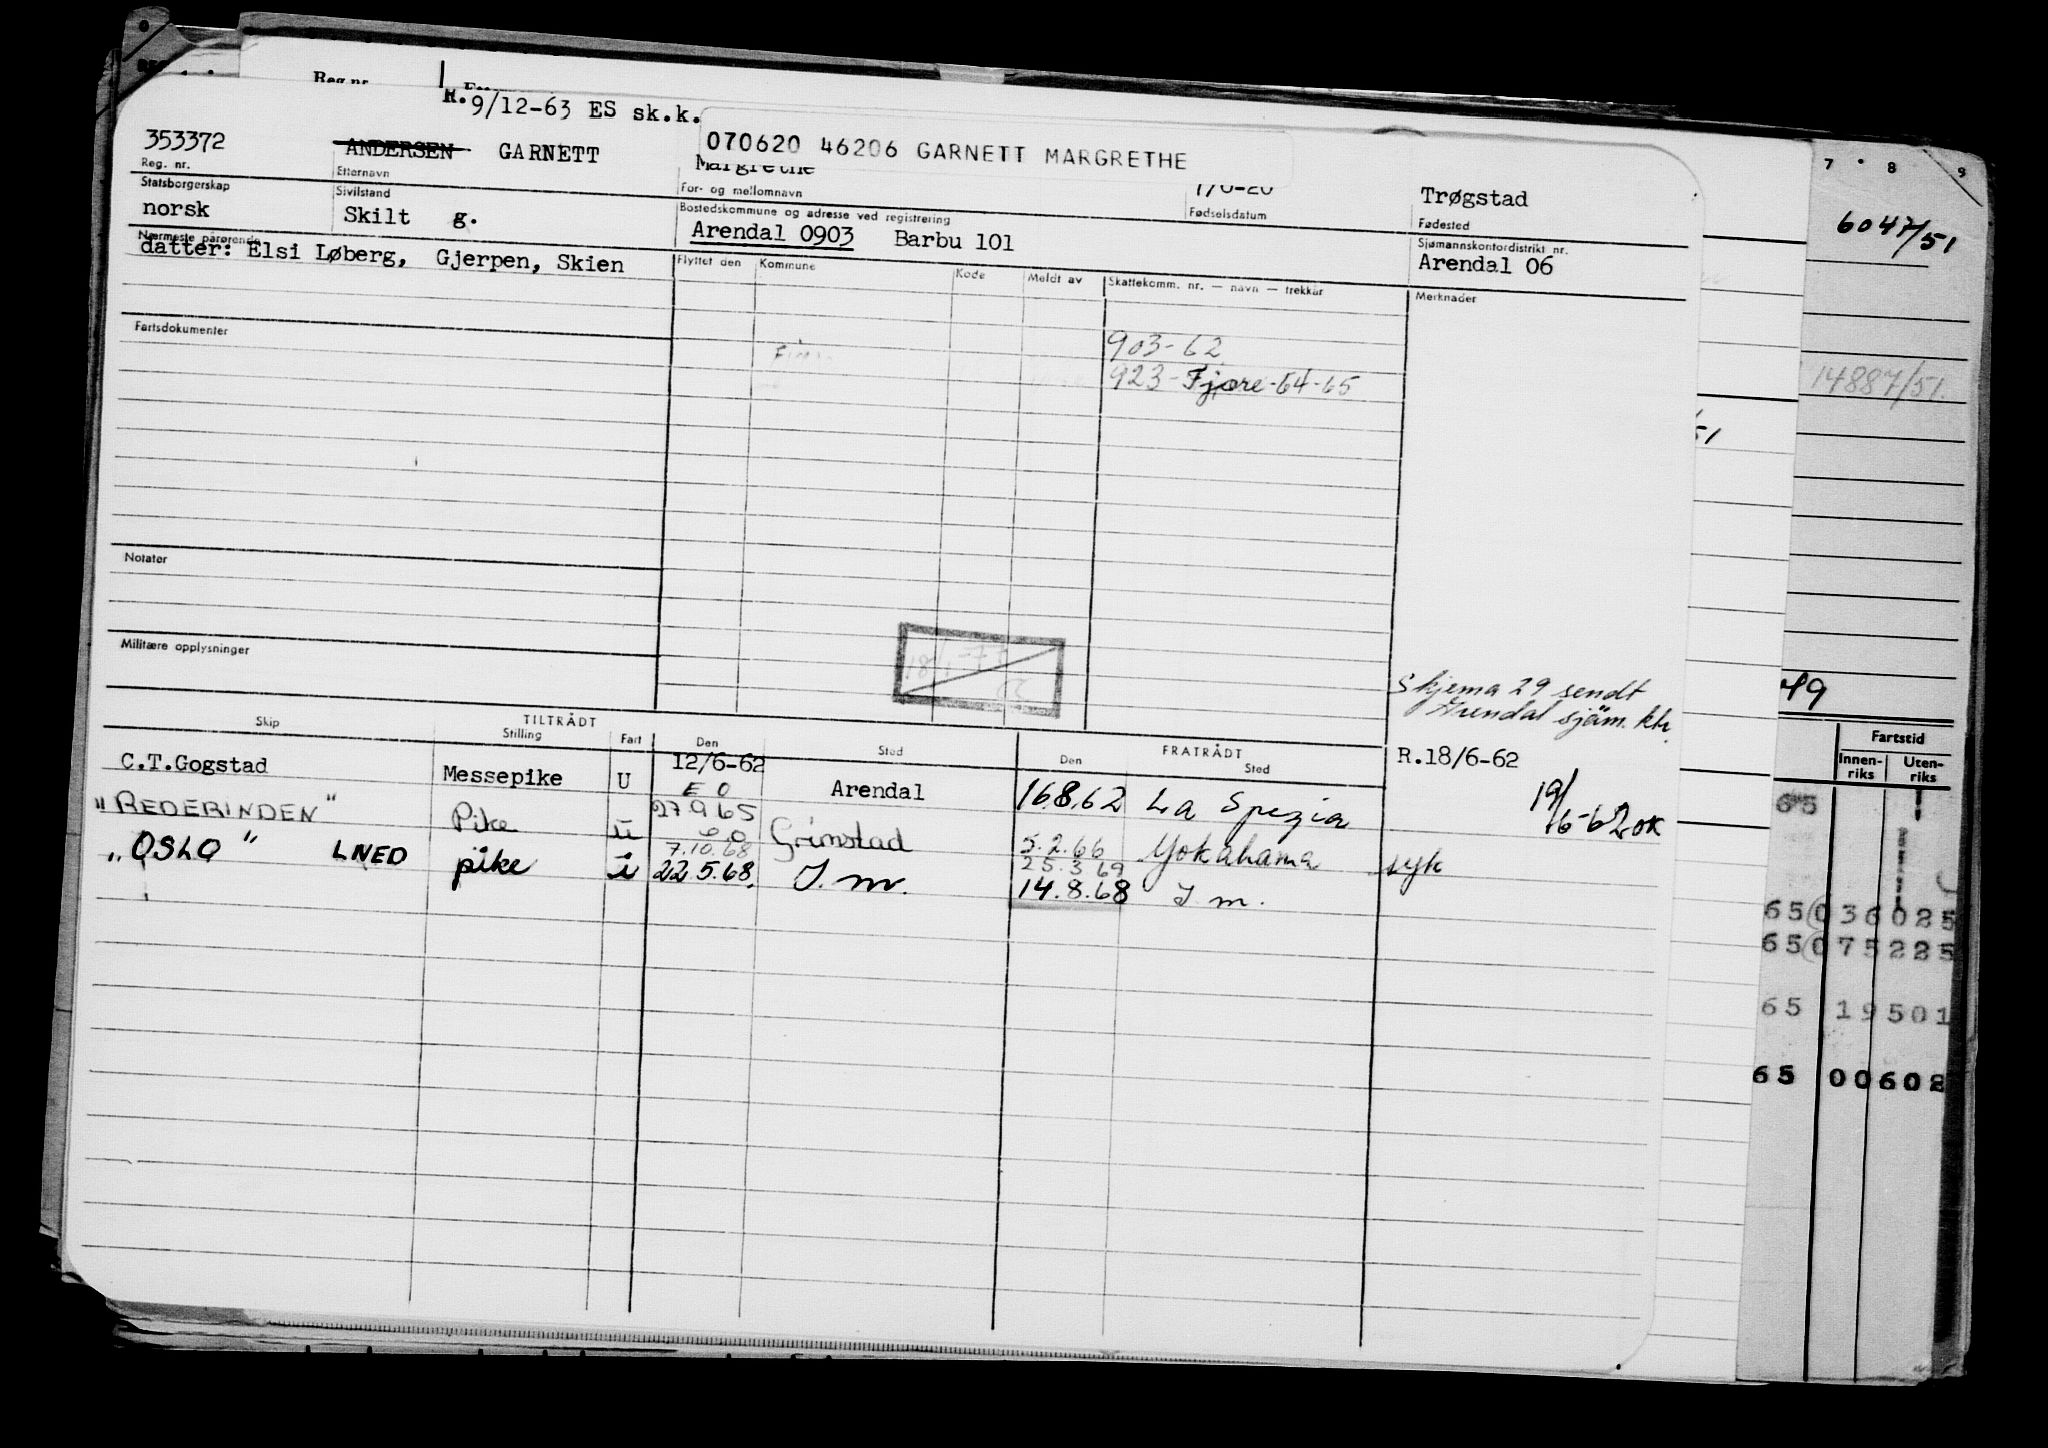 R.9/12-63 ES sk.k.
353372 ANDERSEN GARNETT 070620 46206 GARNETT MARGRETHE
Margrethe Trøgstad
Reg. nr. Etternavn For- og mellomnavn Fødselsdatum Fødested
Statsborgerskap Sivilstand Bostedskommune og adresse ved registrering Sjømannskontordistrikt nr.
norsk Skilt g. Arendal 0903 Barbu 101 Arendal 06
Nærmeste pårørende
datter: Elsi Løberg, Gjerpen, Skien
Flyttet den Kommune Kode Meldt av Skattekomm. nr. — navn — trekkår Merknader
Fartsdokumenter
903-62
923-Fjære-64-65
Notater
Militære opplysninger
Skjema 29 sendt
Arendal sjøm. ktr.
TILTRÅDT FRATRÅDT
Skip Stilling Fart Den Sted Den Sted
C.T.Gogstad Messepike U 12/6-62 Arendal 16.8.62 La Spezia R.18/6-62
E O
19/6-62 OK
"REDERINDEN" Pike U 27.9.65 Grimstad 5.2.66 Yokahama syk
7.10.68 25.3.69
"OSLO" LNED pike U 22.5.68. I.m. 14.8.68 I m.
7 8 9
6047/51
14887/51.
49
Fartstid
Innen-
riks
Uten-
riks
65
65 036025
65 075225
65 19501
65 00602